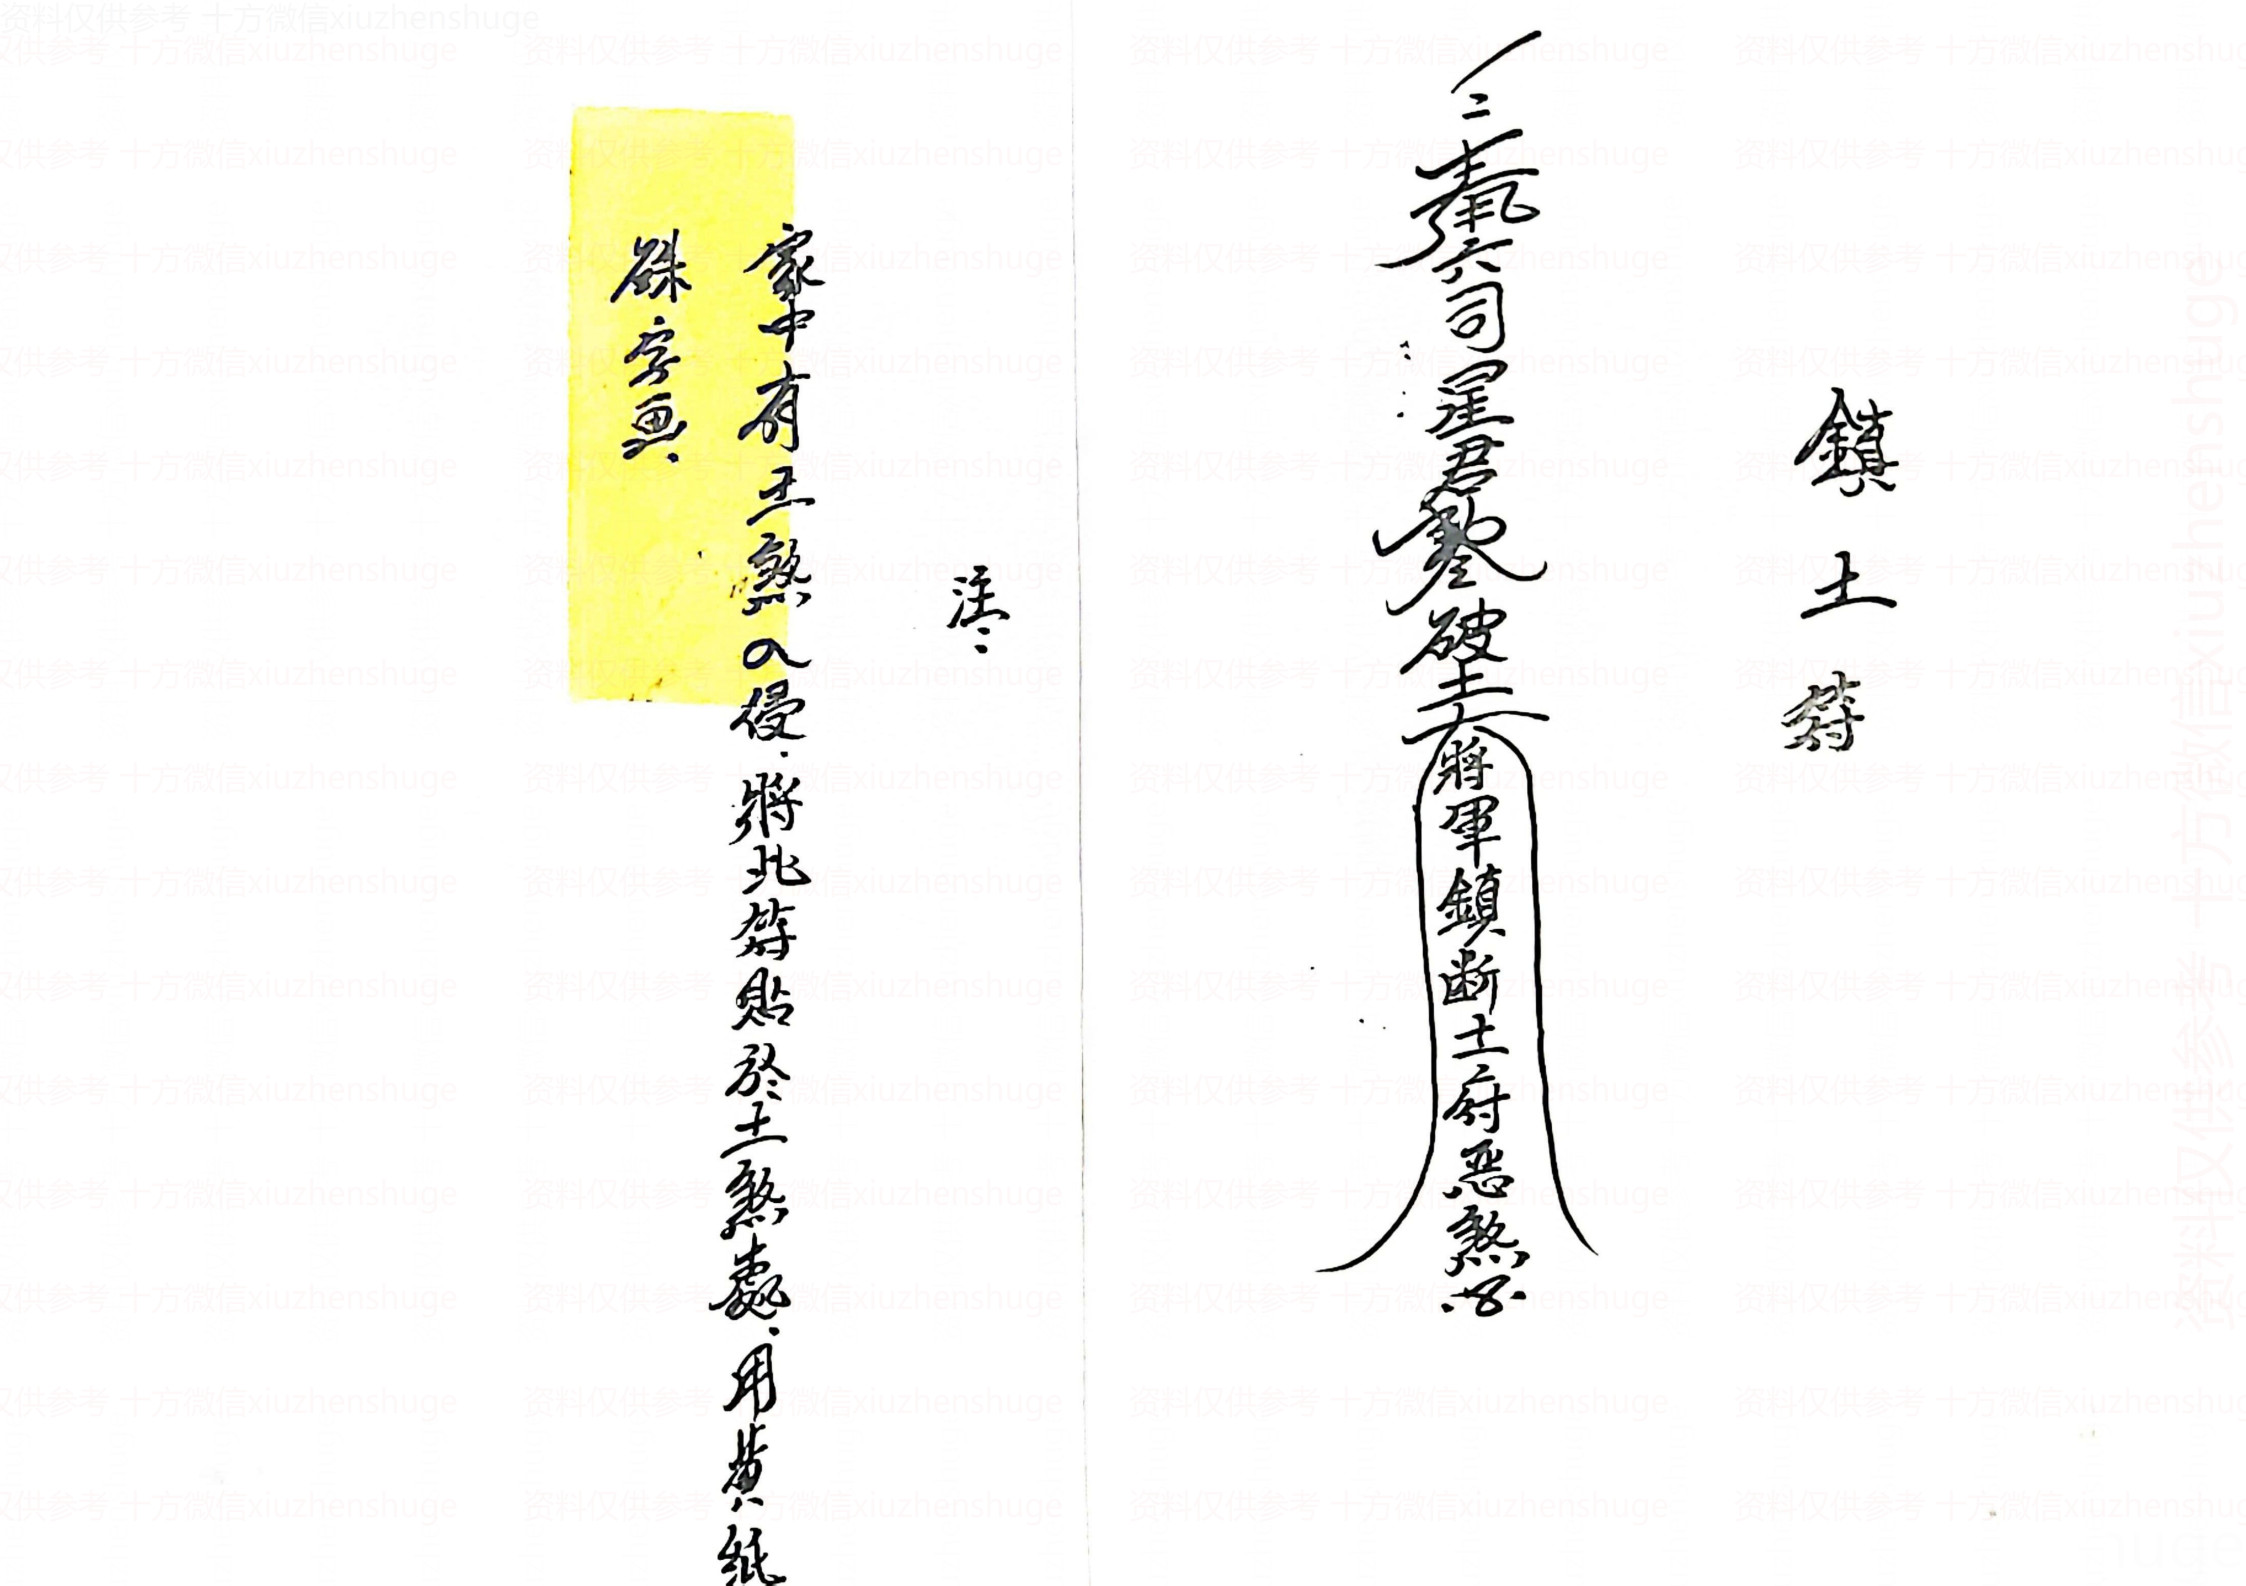 鎮土符
奉 六司星君 破土大將軍鎮断土府惡煞
注:
家中有土煞入侵.將此符貼於土煞處.用黄紙
硃字画.
资料仅供参考 十方微信xiuzhenshuge